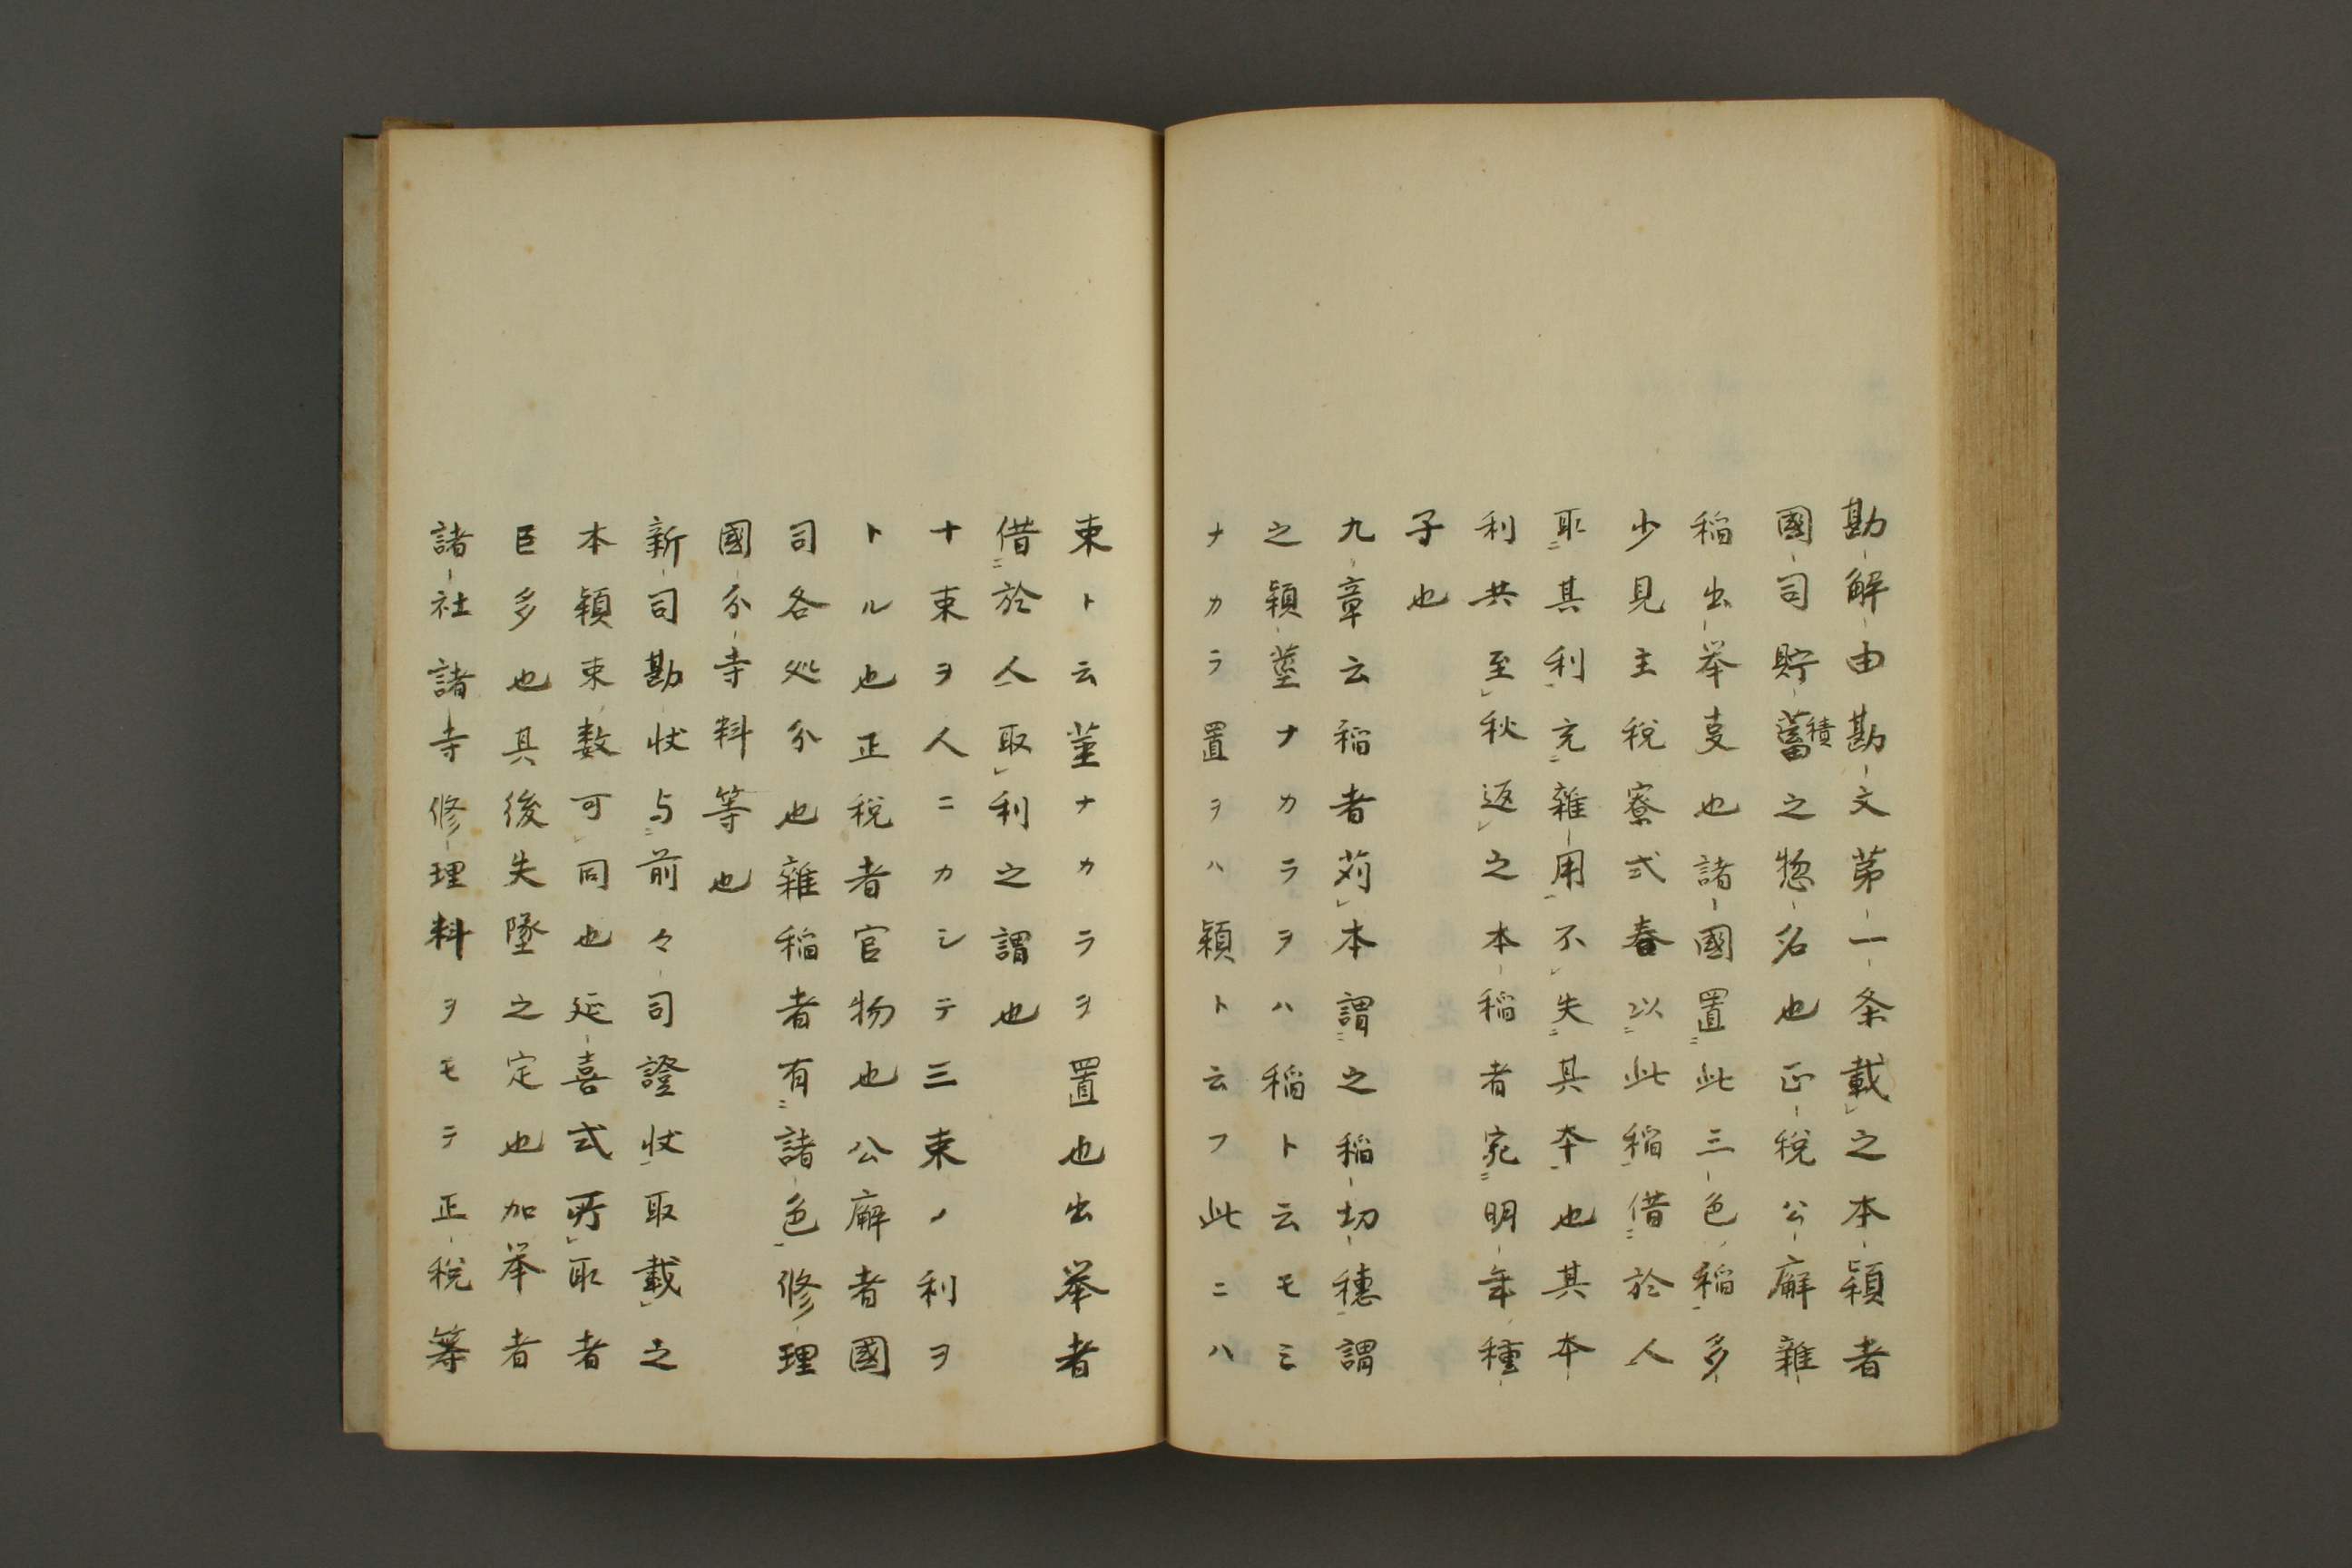 勘解由勘文第一条載之本穎者
國司貯蓄積之惣名也正税公廨雑
稲出挙支也諸國置此三色稲多
少見主税寮式春以此稲借於人
取其利充雑用不失其本也其本
利共至秋返之本稲者宛明年種
子也
九章云稲者苅本謂之稲切穂謂
之穎莖ナカラヲハ稲ト云モミ
ナカラ置ヲハ穎ト云フ此ニハ
束ト云莖ナカラヲ置也出挙者
借於人取利之謂也
十束ヲ人ニカシテ三束ノ利ヲ
トル也正税者官物也公廨者國
司各処分也雑稲者有諸色修理
國分寺料等也
新司勘状与前々司證状取載之
本穎束数可同也延喜式所取者
巨多也其後失墜之定也加挙者
諸社諸寺修理料ヲモテ正税等